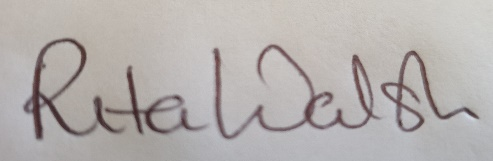 Rita Walsh